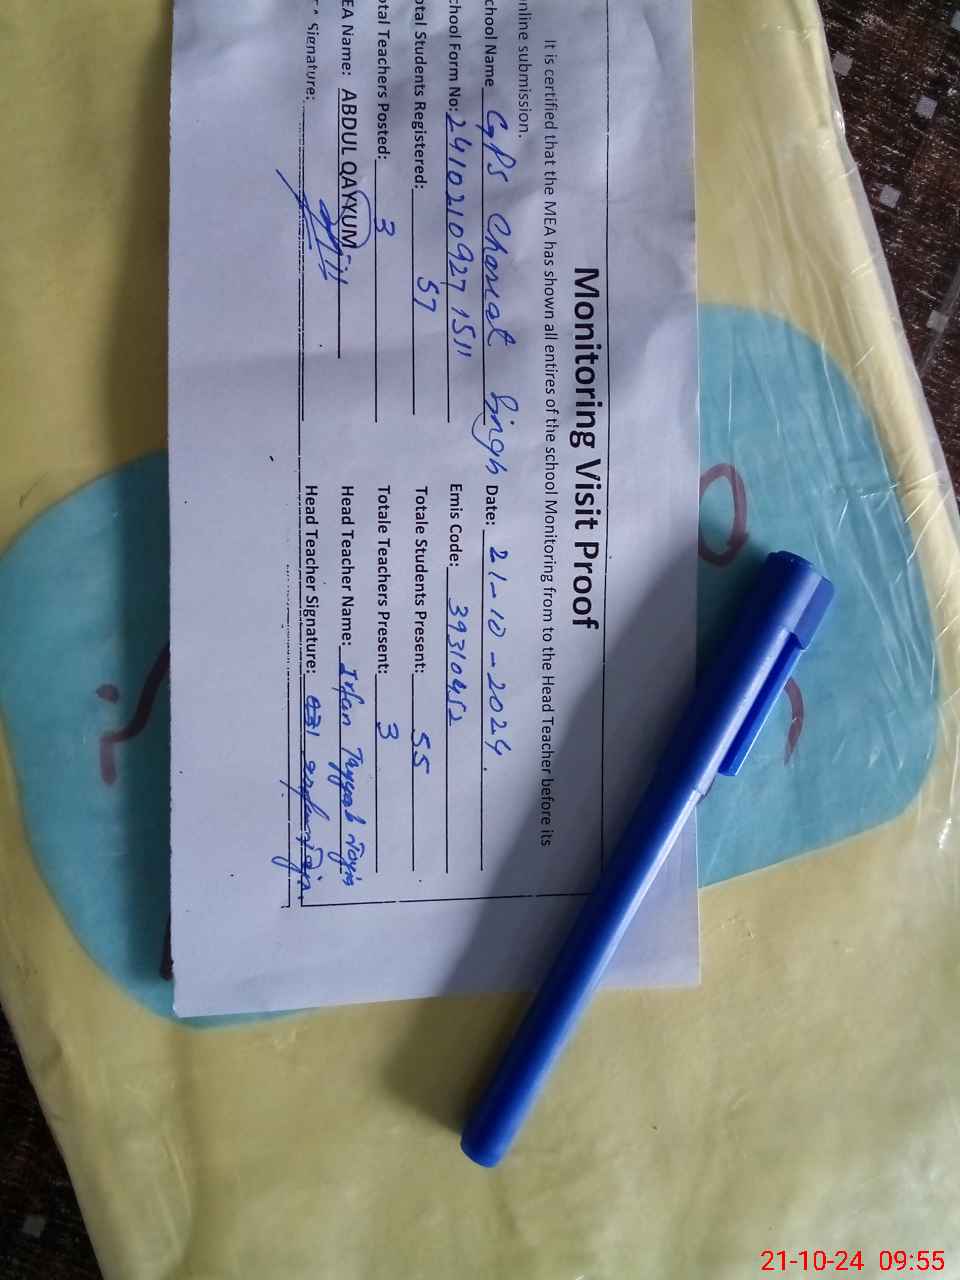 Monitoring Visit Proof
It is certified that the MEA has shown all entires of the school Monitoring from to the Head Teacher before its
nline submission.
chool Name CGPS Charat Singh Date: 21-10-2024.
chool Form No: 24102109271511 Emis Code: 39310452
otal Students Registered: 57 Totale Students Present: 55
otal Teachers Posted: 3 Totale Teachers Present: 3
EA Name: ABDUL QAYYUM Head Teacher Name: Irfan Tayyab
Signature: Head Teacher Signature:
21-10-24 09:55